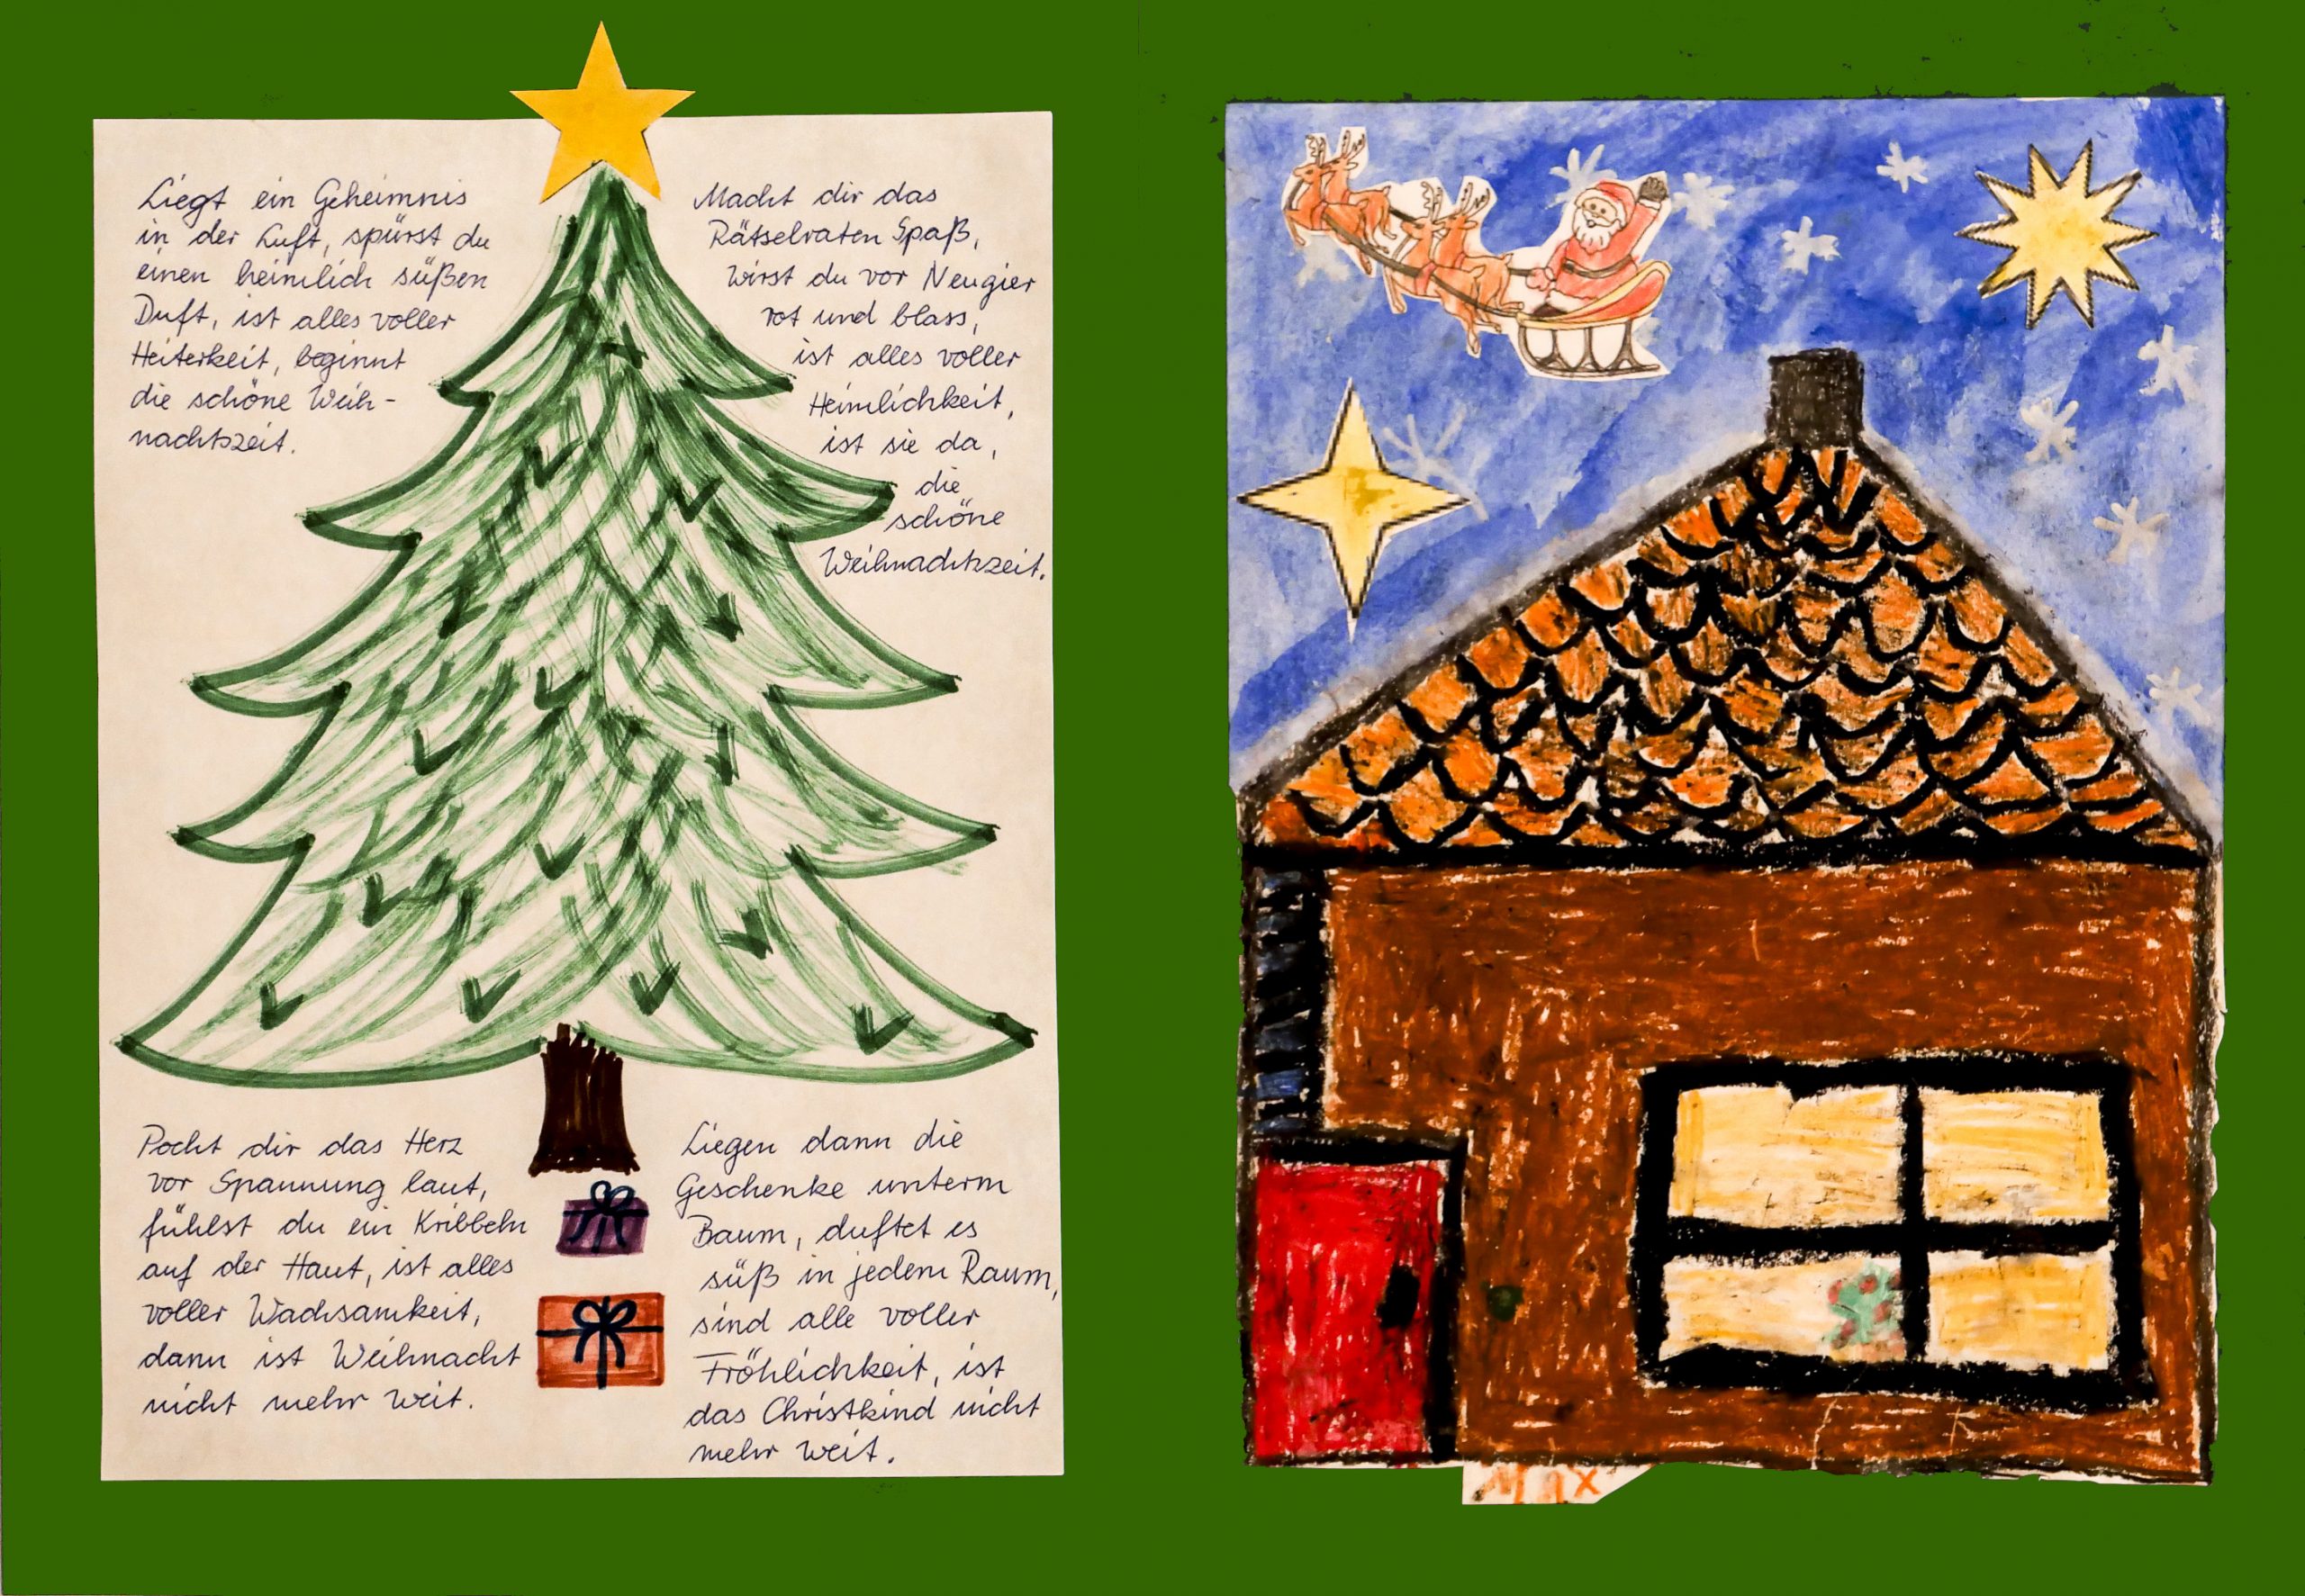 Liegt ein Geheimnis
in der Luft, spürst du
einen heimlich süßen
Duft, ist alles voller
Heiterkeit, beginnt
die schöne Weih-
nachtszeit.
Macht dir das
Rätselraten Spaß,
wirst du vor Neugier
rot und blass,
ist alles voller
Heimlichkeit,
ist sie da,
die
schöne
Weihnachtszeit.
Pocht dir das Herz
vor Spannung laut,
fühlst du ein Kribbeln
auf der Haut, ist alles
voller Wachsamkeit,
dann ist Weihnacht
nicht mehr weit.
Liegen dann die
Geschenke unterm
Baum, duftet es
süß in jedem Raum,
sind alle voller
Fröhlichkeit, ist
das Christkind nicht
mehr weit.